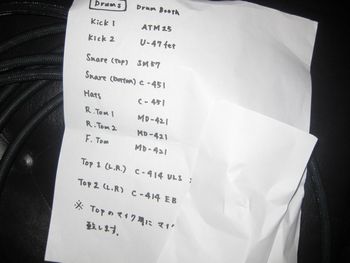 Drums Drum Booth
Kick 1 ATM 25
Kick 2 U-47 fet
Snare (top) SM57
Snare (bottom) C-451
Hats C-451
R. Tom 1 MD-421
R. Tom 2 MD-421
F. Tom MD-421
Top 1 (L.R.) C-414 ULS
Top 2 (L.R.) C-414 EB
※ Topのマイク
致します。